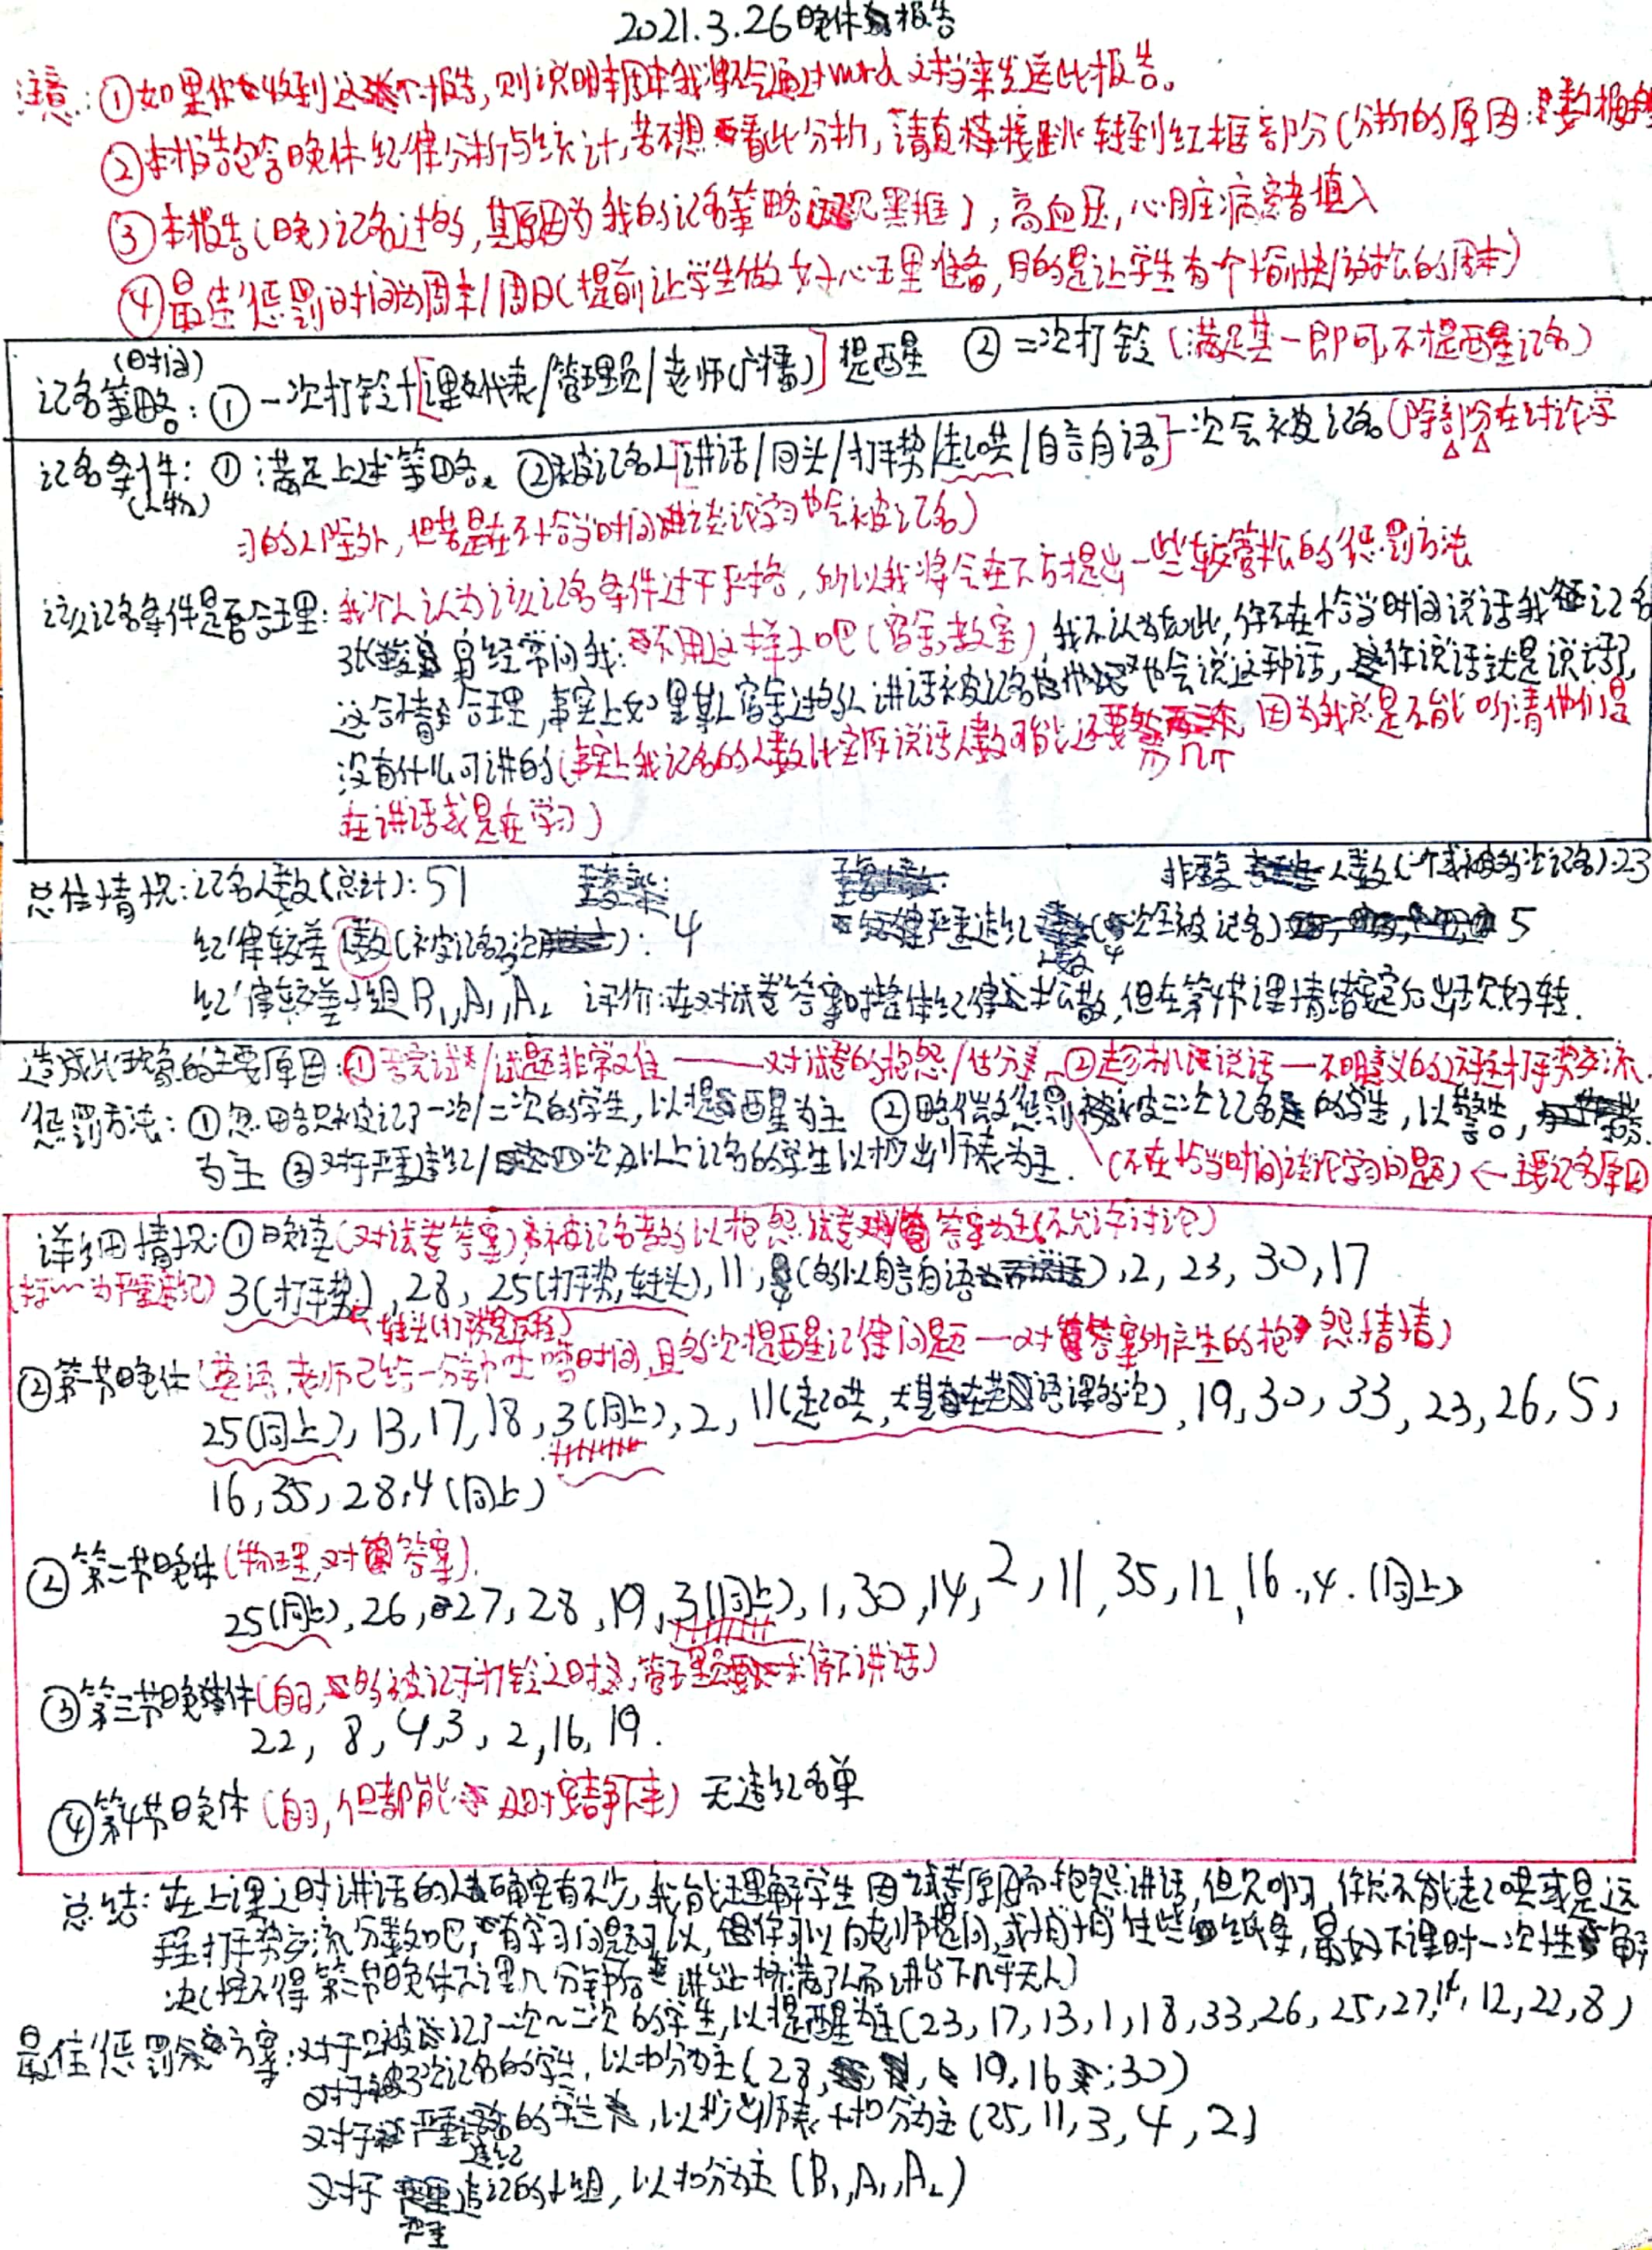 2021.3.26晚休报告
注意:①如果你收到这个报告,则说明本周末我将不会通过word文档来发送此报告。
②本报告包含晚休纪律分析与统计,若不想看此分析,请直接跳转到红框部分(分析的原因:
③本报告(晚)记名过多,其原因为我的记名策略(见黑框),高血压,心脏病患者慎入
④最佳惩罚时间为周末/周日(提前让学生做好心理准备,目的是让学生有个愉快/放松的周末)
(时间)
记名策略:①一次打铃+[课代表/管理员/老师(广播)]提醒 ②二次打铃(满足其一即可,不提醒记名)
记名条件:①满足上述策略。②被记名人[讲话/回头/打手势/起哄/自言自语]一次会被记名(除部分在讨论学
(人物)
习的人除外,但若是在不恰当时间讨论学习也会被记名)
该记名条件是否合理:我个人认为该记名条件过于严格,所以我将会在下方提出一些较宽松的惩罚方法
经常问我:不用这样子吧(宿舍,教室),我不认为如此,你在不恰当时间说话我记名
这合情合理,事实上如果某人宿舍过的人讲话被记名他也会说这种话,你说话就是说话了,
没有什么可讲的(事实上我记名的人数比实际说话人数可能还要少几个,因为我总是不能听清他们是
在讲话或是在学习)
总体情况:记名人数(总计):51 人数(一个或被多次记名):23
纪律较差人数(被记名3次):4 严重违纪人数(4次全被记名) 5
纪律较差小组B₁,A₁,A₂ 评价:在对试卷答案时整体纪律松散,但在第4节课情绪稳定后出现好转.
造成此现象的主要原因:①考完试/试题非常难——对试卷的抱怨/估分差。②趁机说话—不明意义的打手势交流.
惩罚方法:①忽略只被记了一次/二次的学生,以提醒为主 ②略微惩罚被三次记名的学生,以警告,
为主 ③对于严重违纪/四次及以上记名的学生以抄出师表为主.(不在恰当时间讨论学习问题)←主要记名原因
详细情况:①晚读(对试卷答案),被记名者多以抱怨试卷答案为主(不允许讨论)
(标~~为严重违纪) 3(打手势),28,25(打手势,转头),11,4(多以自言自语),2,23,30,17
②第一节晚休(英语,老师已给一分钟吐嘈时间,且多次提醒记律问题—对答案所产生的抱怨情绪)
25(同上),13,17,18,3(同上),2,11(起哄,尤其在英语课多次),19,30,33,23,26,5,
16,35,28,4(同上)
②第二节晚休(物理,对答案).
25(同上),26,27,28,19,3(同上),1,30,14,2,11,35,12,16,4.(同上)
③第三节晚休(自习,多被记于打铃之时,管理员要求停下讲话)
22,8,4,3,2,16,19.
④第4节晚休(自习,但都能及时安静下来) 无违纪名单
总结:在上课之时讲话的人确实有不少,我能理解学生因试卷原因而抱怨讲话,但兄啊,你总不能起哄或是远
程打手势交流分数吧,有学习问题可以,你可以向老师提问,或悄悄传些纸条,最好下课时一次性解
决(怪不得第二节晚休下课几分钟后讲台上挤满了人而讲台下几乎无人)
最佳惩罚方案:对于只被记了一次~二次的学生,以提醒为主(23,17,13,1,18,33,26,25,27,14,12,22,8)
对于被3次记名的学生,以扣分为主(28,19,16,30)
对于严重违纪的学生,以抄出师表+扣分为主(25,11,3,4,2)
对于严重违纪的小组,以扣分为主(B₁,A₁,A₂)